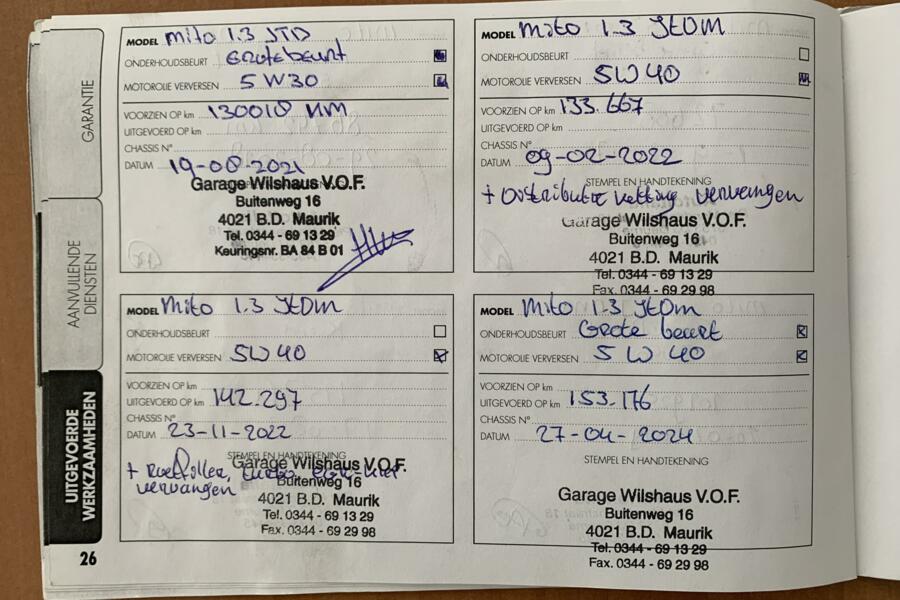 GARANTIE
AANVULLENDE
DIENSTEN
UITGEVOERDE
WERKZAAMHEDEN
26
MODEL Mito 1.3 JTD
ONDERHOUDSBEURT Grote beurt
MOTOROLIE VERVERSEN 5W30
VOORZIEN OP km 130018 KM
UITGEVOERD OP km
CHASSIS N°
DATUM 19-08-2021
Garage Wilshaus V.O.F.
Buitenweg 16
4021 B.D. Maurik
Tel. 0344 - 69 13 29
Keuringsnr. BA 84 B 01
MODEL Mito 1.3 JtDm
ONDERHOUDSBEURT
MOTOROLIE VERVERSEN 5W40
VOORZIEN OP km 133.667
UITGEVOERD OP km
CHASSIS N°
DATUM 09-02-2022
STEMPEL EN HANDTEKENING
+ Distributie ketting vervangen
Garage Wilshaus V.O.F.
Buitenweg 16
4021 B.D. Maurik
Tel. 0344 - 69 13 29
Fax. 0344 - 69 29 98
MODEL Mito 1.3 JtDm
ONDERHOUDSBEURT
MOTOROLIE VERVERSEN 5W40
VOORZIEN OP km
UITGEVOERD OP km 142.297
CHASSIS N°
DATUM 23-11-2022
STEMPEL EN HANDTEKENING
+ Roetfilter, turbo,
vervangen
Garage Wilshaus V.O.F.
Buitenweg 16
4021 B.D. Maurik
Tel. 0344 - 69 13 29
Fax. 0344 - 69 29 98
MODEL Mito 1.3 JtDm
ONDERHOUDSBEURT Grote beurt
MOTOROLIE VERVERSEN 5W40
VOORZIEN OP km
UITGEVOERD OP km 153.176
CHASSIS N°
DATUM 27-04-2024
STEMPEL EN HANDTEKENING
Garage Wilshaus V.O.F.
Buitenweg 16
4021 B.D. Maurik
Tel. 0344 - 69 13 29
Fax. 0344 - 69 29 98